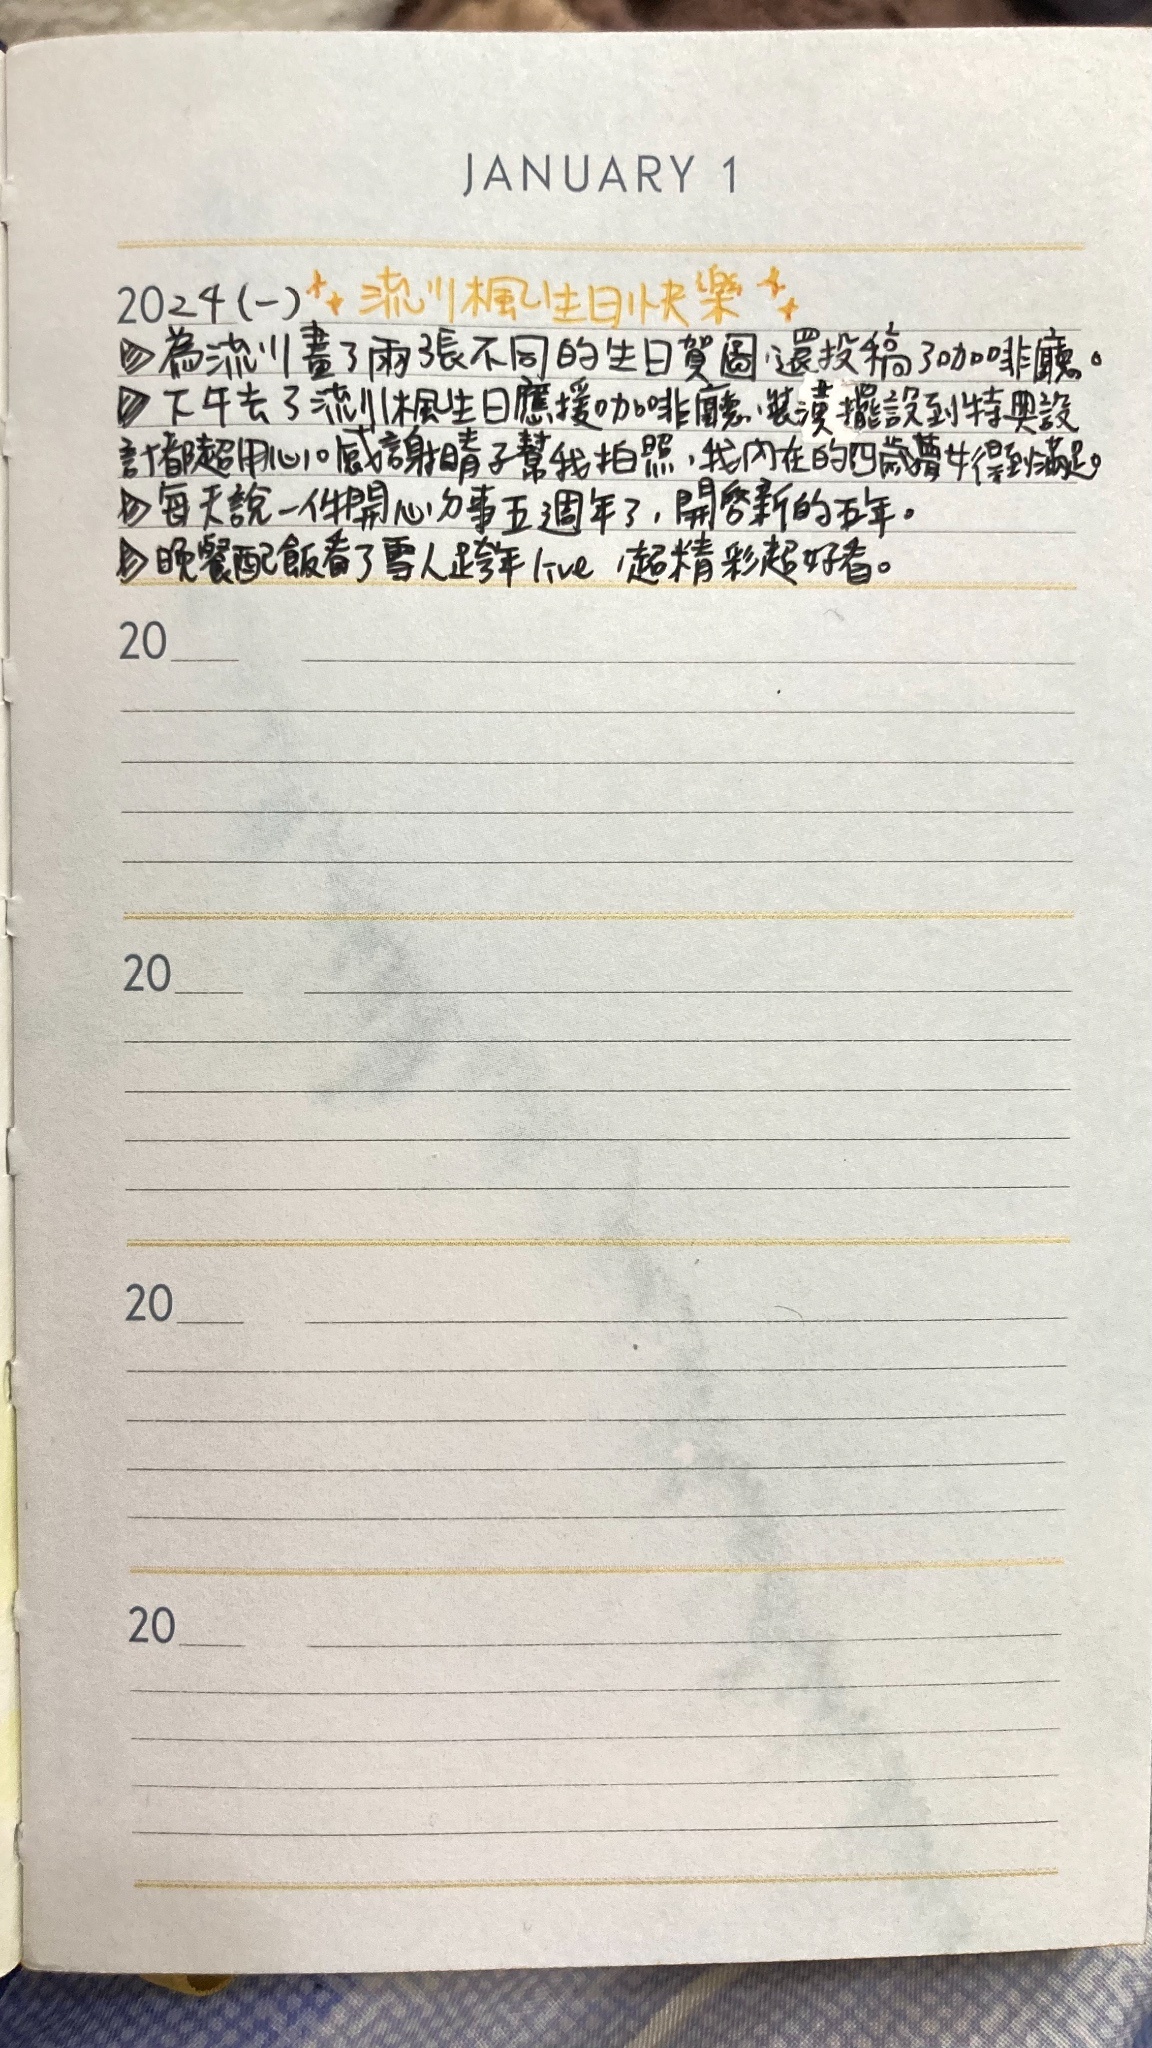 JANUARY 1
2024(一) 流川楓生日快樂
為流川畫了兩張不同的生日賀圖,還投稿了咖啡廳。
下午去了流川楓生日應援咖啡廳,裝潢擺設到特典設
計都超用心。感謝晴子幫我拍照,我內在的四歲得到滿足。
每天說一件開心的事五週年了,開啓新的五年。
晚餐配飯看了雪人跨年live,超精彩超好看。
20
20
20
20